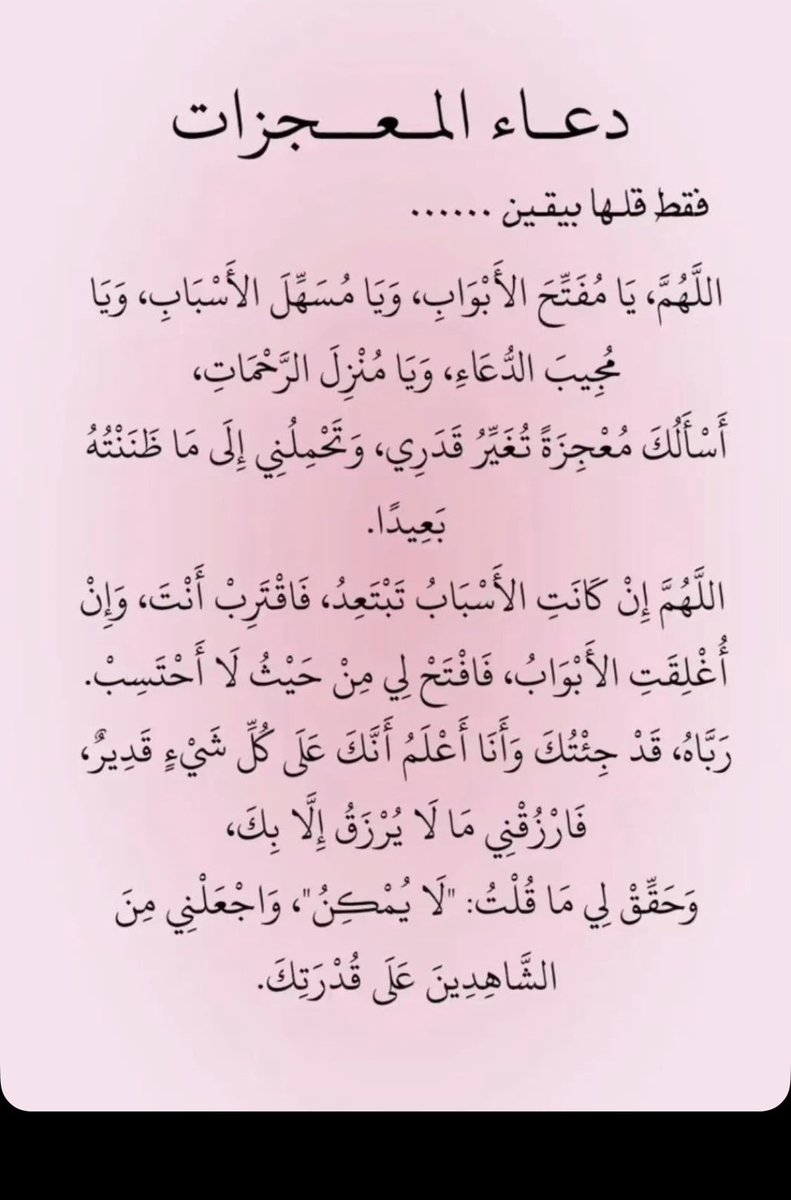 دعاء المعجزات
فقط قلها بيقين ......
اللَّهُمَّ، يَا مُفَتِّحَ الأَبْوَابِ، وَيَا مُسَهِّلَ الأَسْبَابِ، وَيَا
مُجِيبَ الدُّعَاءِ، وَيَا مُنْزِلَ الرَّحْمَاتِ،
أَسْأَلُكَ مُعْجِزَةً تُغَيِّرُ قَدَرِي، وَتَحْمِلُنِي إِلَى مَا ظَنَنْتُهُ
بَعِيدًا.
اللَّهُمَّ إِنْ كَانَتِ الأَسْبَابُ تَبْتَعِدُ، فَاقْتَرِبْ أَنْتَ، وَإِنْ
أُغْلِقَتِ الأَبْوَابُ، فَافْتَحْ لِي مِنْ حَيْثُ لَا أَحْتَسِبْ.
رَبَّاهُ، قَدْ جِئْتُكَ وَأَنَا أَعْلَمُ أَنَّكَ عَلَى كُلِّ شَيْءٍ قَدِيرٌ،
فَارْزُقْنِي مَا لَا يُرْزَقُ إِلَّا بِكَ،
وَحَقِّقْ لِي مَا قُلْتُ: "لَا يُمْكِنُ"، وَاجْعَلْنِي مِنَ
الشَّاهِدِينَ عَلَى قُدْرَتِكَ.